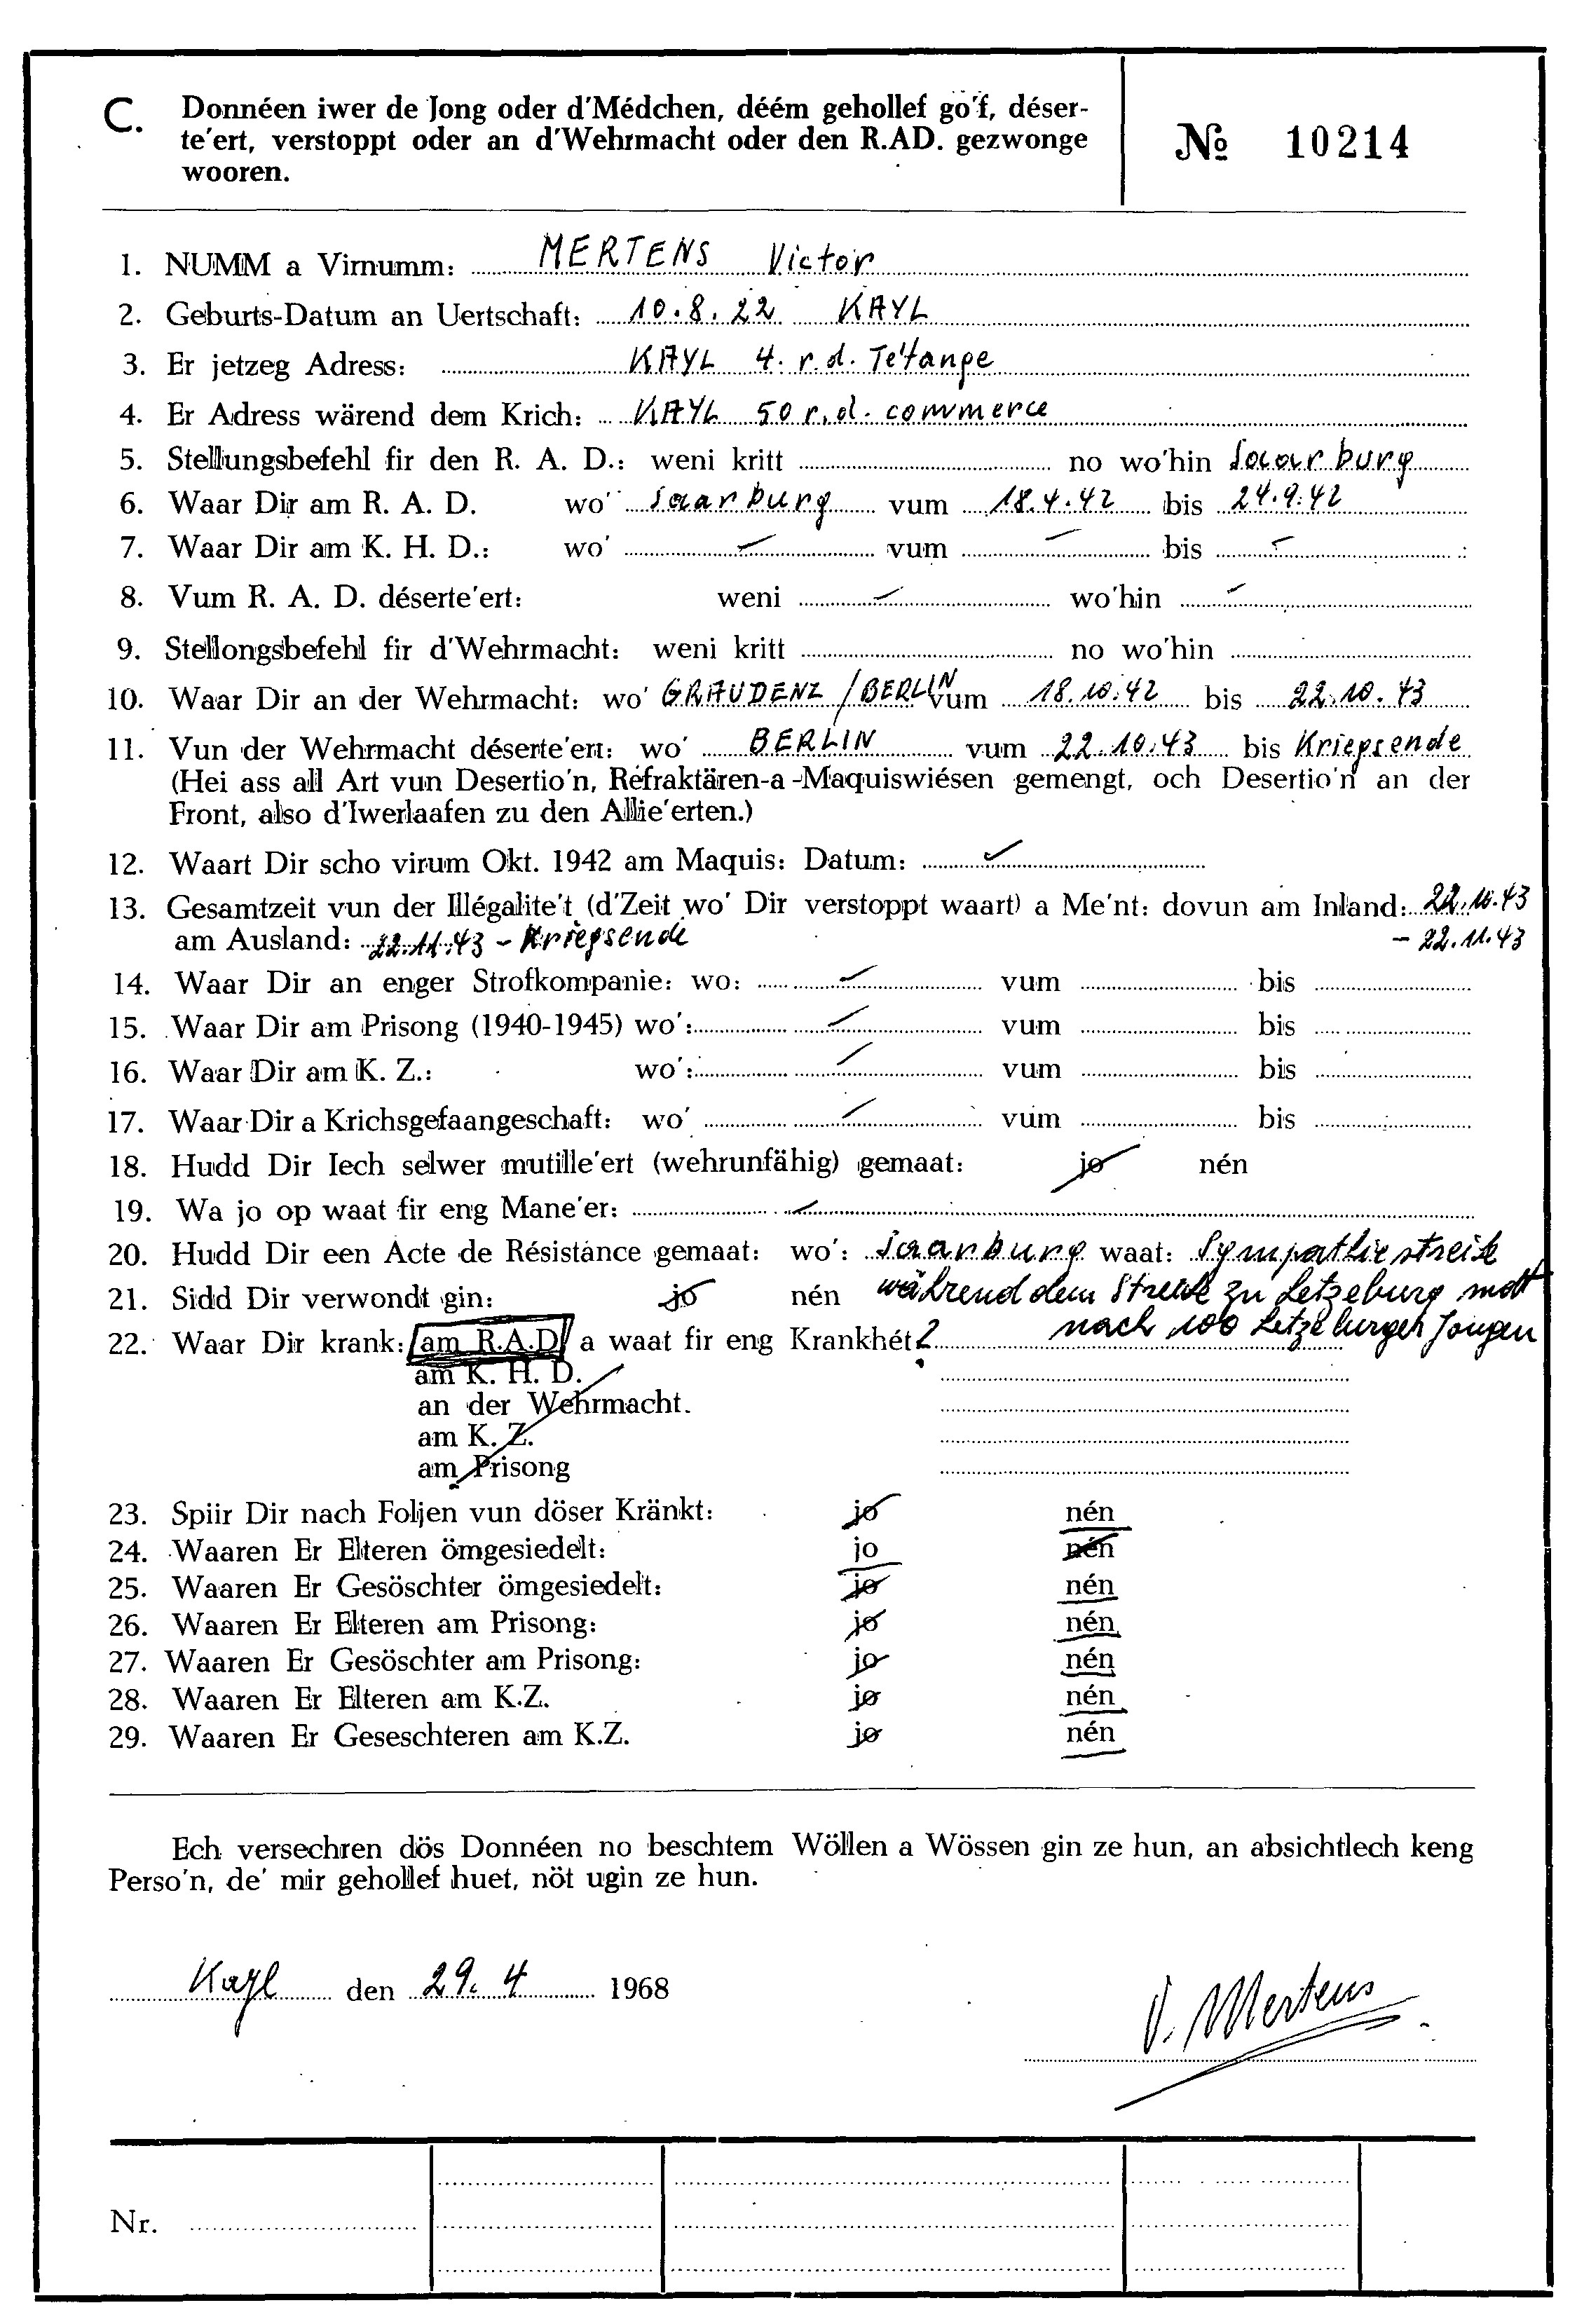 C. Donnéen iwer de Jong oder d'Médchen, déém gehollef go'f, déser-
te'ert, verstoppt oder an d'Wehrmacht oder den R.AD. gezwonge
wooren.
№ 10214
1. NUMM a Virnumm: MERTENS Victor
2. Geburts-Datum an Uertschaft: 10.8.22 KAYL
3. Er jetzeg Adress: KAYL 4. r.d. Te'tange
4. Er Adress wärend dem Krich: KAYL 50 r.d. commerce
5. Stellungsbefehl fir den R. A. D.: weni kritt no wo'hin Saarburg
6. Waar Dir am R. A. D. wo' Saarburg vum 18.4.42 bis 24.9.42
7. Waar Dir am K. H. D.: wo' vum bis
8. Vum R. A. D. déserte'ert: weni wo'hin
9. Stellongsbefehl fir d'Wehrmacht: weni kritt no wo'hin
10. Waar Dir an der Wehrmacht: wo' GRAUDENZ / BERLIN vum 18.10.42 bis 22.10.43
11. Vun der Wehrmacht déserte'ert: wo' BERLIN vum 22.10.43 bis Kriegsende
(Hei ass all Art vun Desertio'n, Refraktären-a-Maquiswiésen gemengt, och Desertio'n an der
Front, also d'Iwerlaafen zu den Allie'erten.)
12. Waart Dir scho virum Okt. 1942 am Maquis: Datum:
13. Gesamtzeit vun der Illégalite't (d'Zeit wo' Dir verstoppt waart) a Me'nt: dovun am Inland: 22.10.43
am Ausland: 22.11.43 - Kriegsende - 22.11.43
14. Waar Dir an enger Strofkompanie: wo: vum bis
15. Waar Dir am Prisong (1940-1945) wo': vum bis
16. Waar Dir am K. Z.: wo': vum bis
17. Waar Dir a Krichsgefaangeschaft: wo' vum bis
18. Hudd Dir Iech selwer mutille'ert (wehrunfähig) gemaat: jo nén
19. Wa jo op waat fir eng Mane'er:
20. Hudd Dir een Acte de Résistance gemaat: wo': Saarburg waat: Sympathiestreik
21. Sidd Dir verwondt gin: jo nén während dem Streik zu Letzeburg mat
22. Waar Dir krank: am R.A.D. a waat fir eng Krankhét? nach 100 Letzeburger Jongen
am K. H. D.
an der Wehrmacht.
am K. Z.
am Prisong
23. Spiir Dir nach Foljen vun döser Kränkt: jo nén
24. Waaren Er Elteren ömgesiedelt: jo nén
25. Waaren Er Gesöschter ömgesiedelt: jo nén
26. Waaren Er Elteren am Prisong: jo nén
27. Waaren Er Gesöschter am Prisong: jo nén
28. Waaren Er Elteren am K.Z. jo nén
29. Waaren Er Geseschteren am K.Z. jo nén
Ech versechren dös Donnéen no beschtem Wöllen a Wössen gin ze hun, an absichtlech keng
Perso'n, de' mir gehollef huet, nöt ugin ze hun.
Kayl den 29. 4 1968
V. Mertens
Nr.